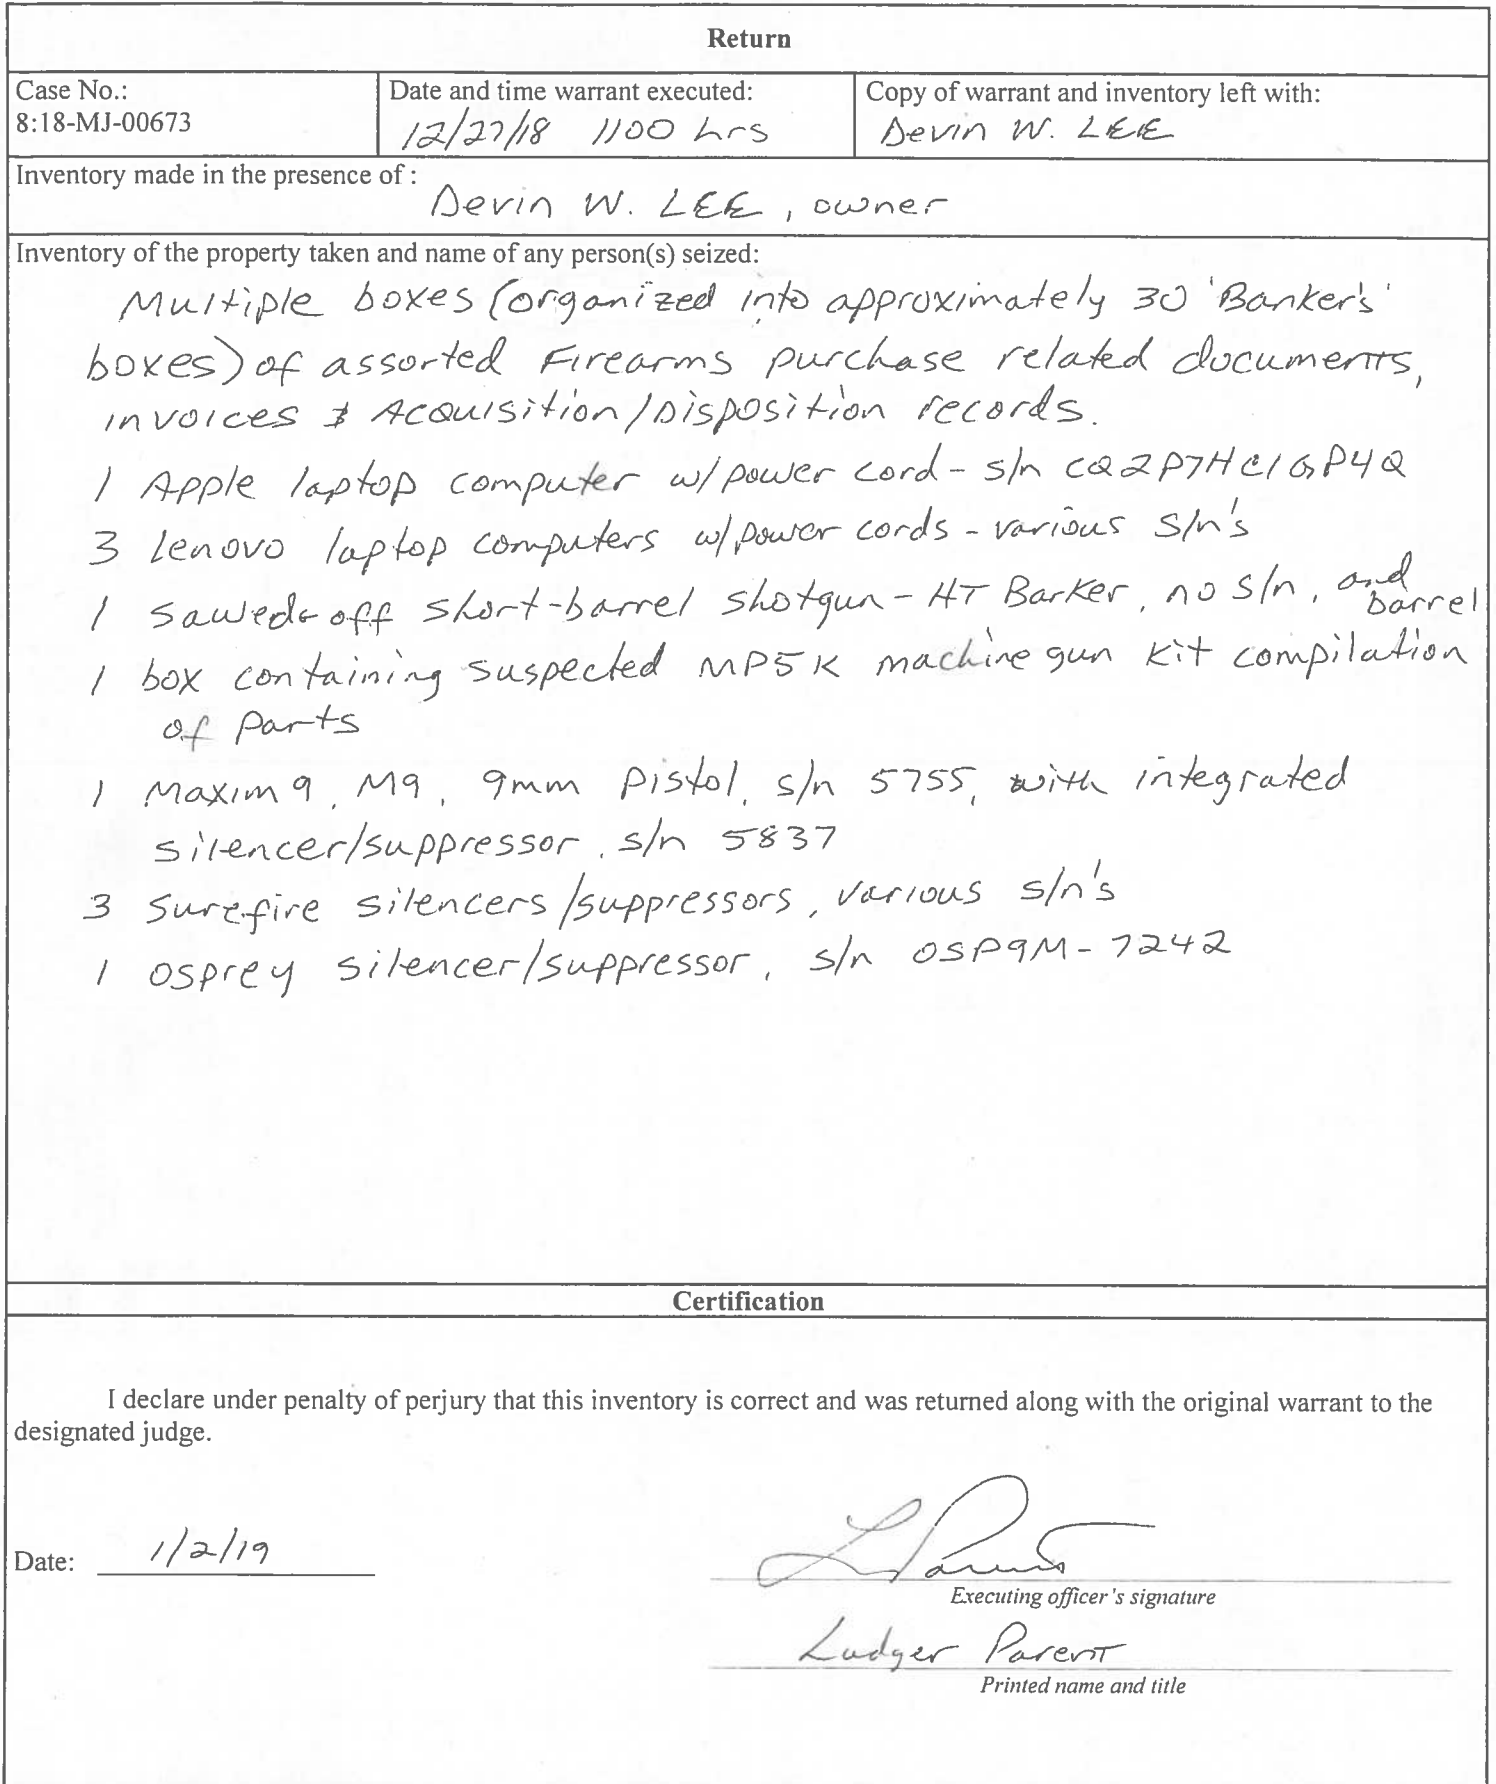 Return
Case No.:
8:18-MJ-00673
Date and time warrant executed:
12/27/18 1100 hrs
Copy of warrant and inventory left with:
Devin W. LEE
Inventory made in the presence of :
Devin W. LEE, owner
Inventory of the property taken and name of any person(s) seized:
Multiple boxes (organized into approximately 30 'Banker's'
boxes) of assorted Firearms purchase related documents,
invoices & Acquisition/Disposition records.
1 Apple laptop computer w/power cord - s/n CQ2P7HC1GP4Q
3 Lenovo laptop computers w/power cords - various s/n's
1 Sawed-off short-barrel shotgun - HT Barker, no s/n, and
barrel
1 box containing suspected MP5K machine gun kit compilation
of parts
1 Maxim 9, M9, 9mm Pistol, s/n 5755, with integrated
silencer/suppressor, s/n 5837
3 Surefire silencers/suppressors, various s/n's
1 Osprey silencer/suppressor, s/n OSP9M-7242
Certification
I declare under penalty of perjury that this inventory is correct and was returned along with the original warrant to the
designated judge.
Date: 1/2/19
L Parent
Executing officer's signature
Ludger Parent
Printed name and title